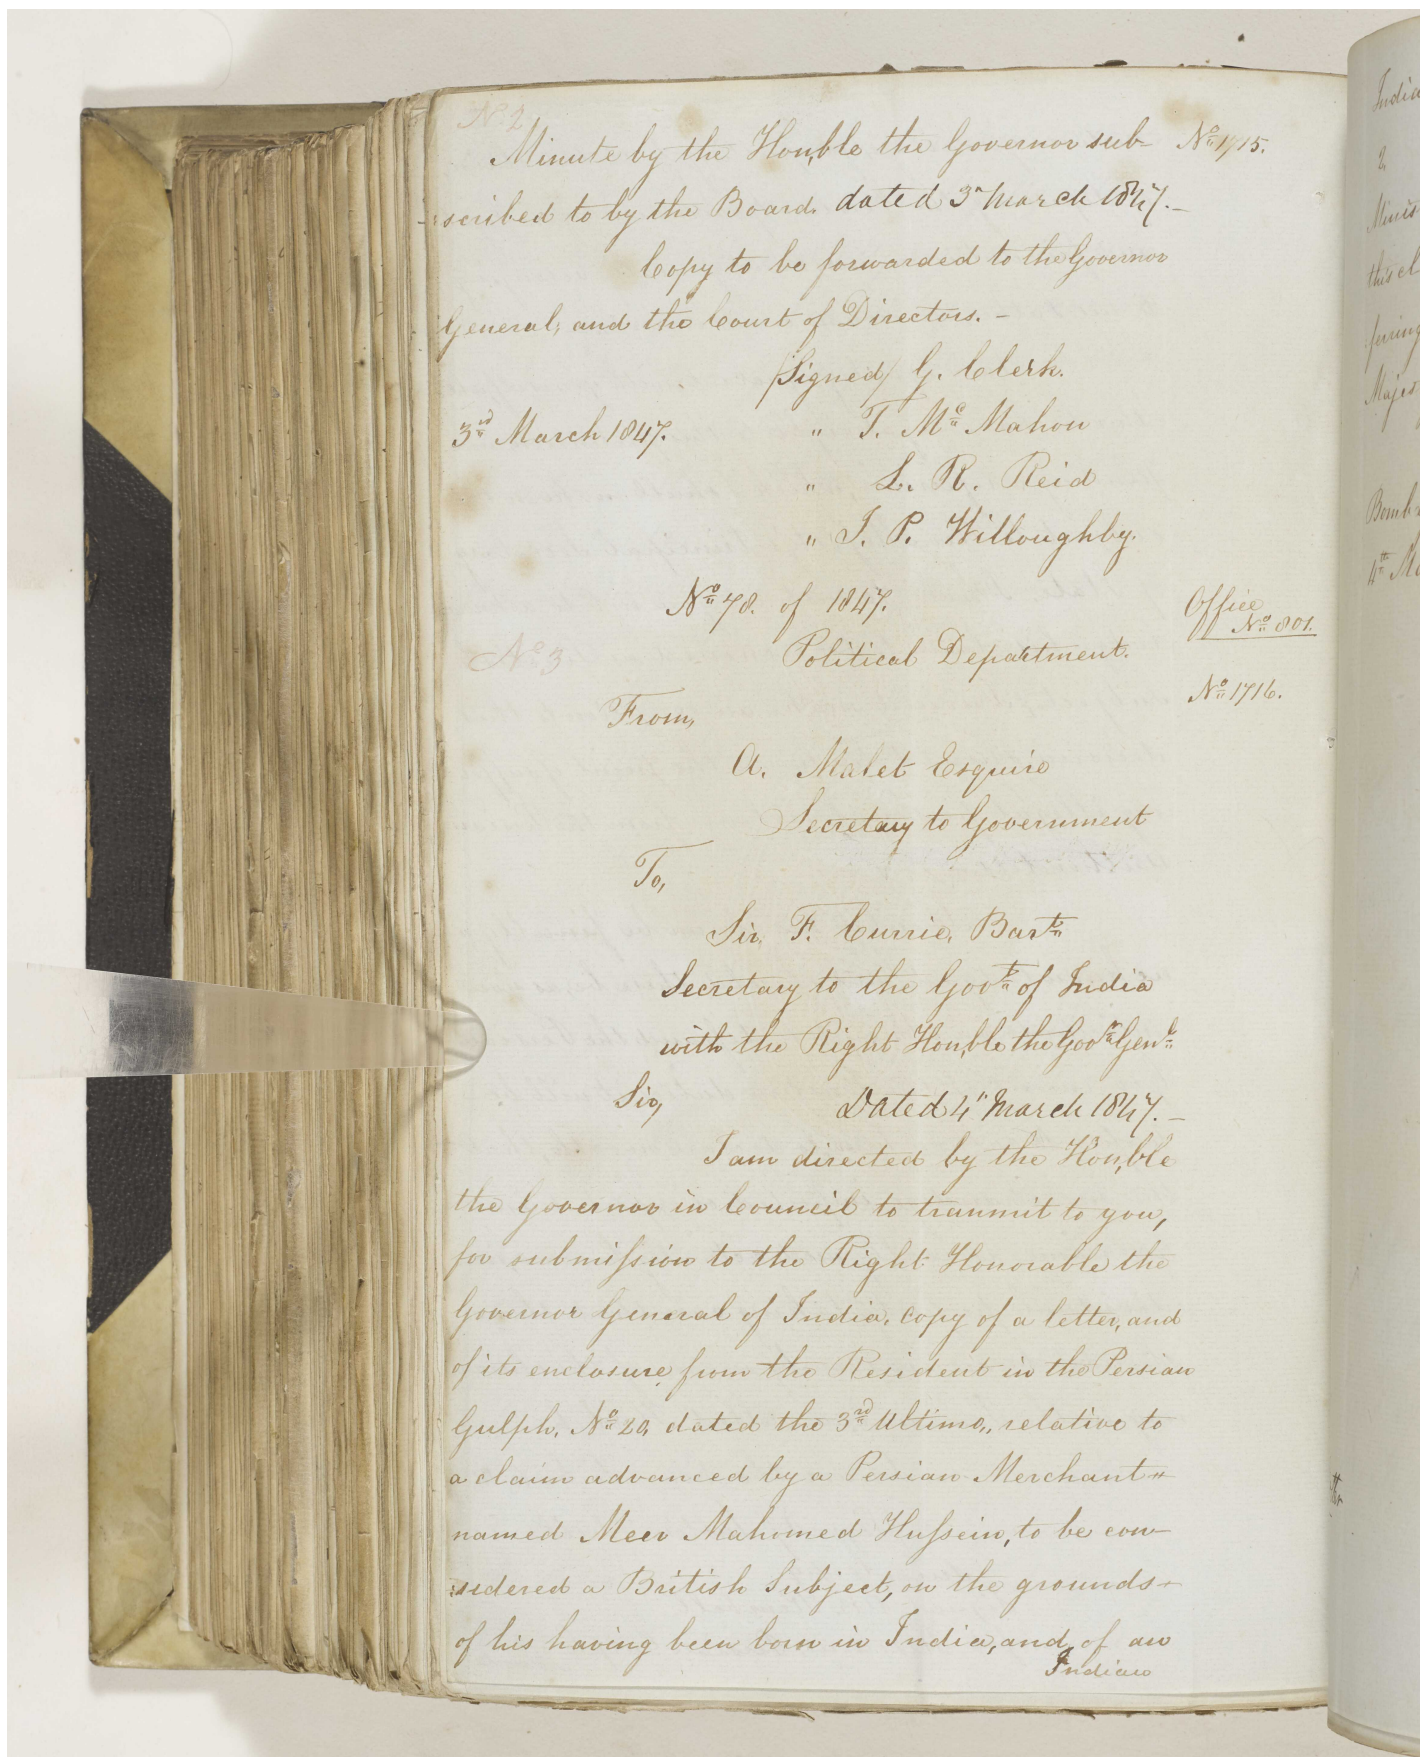 No. 2
Minute by the Hon,ble the Governor sub- No. 1715.
-scribed to by the Board. dated 3" March 1847.-
Copy to be forwarded to the Governor
General, and the Court of Directors. -
/Signed/ G. Clerk.
3rd March 1847. " T. Mc Mahon
" L. R. Reid
" J. P. Willoughby.
No. 78. of 1847. Office
No. 801.
No 3 Political Department.
No. 1716.
From,
A. Malet Esquire
Secretary to Government
To,
Sir, F. Currie, Bart.
Secretary to the Govt. of India
with the Right Hon,ble the Govr. Genl.
Sir, Dated 4" March 1847. -
I am directed by the Hon,ble
the Governor in Council to tranmit to you,
for submission to the Right Honorable the
Governor General of India, copy of a letter, and
of its enclosure, from the Resident in the Persian
Gulph, No. 20, dated the 3rd Ultimo, relative to
a claim advanced by a Persian Merchant
named Meer Mahomed Hussein, to be con-
:sidered a British Subject, on the grounds
of his having been born in India, and, of an
Indian